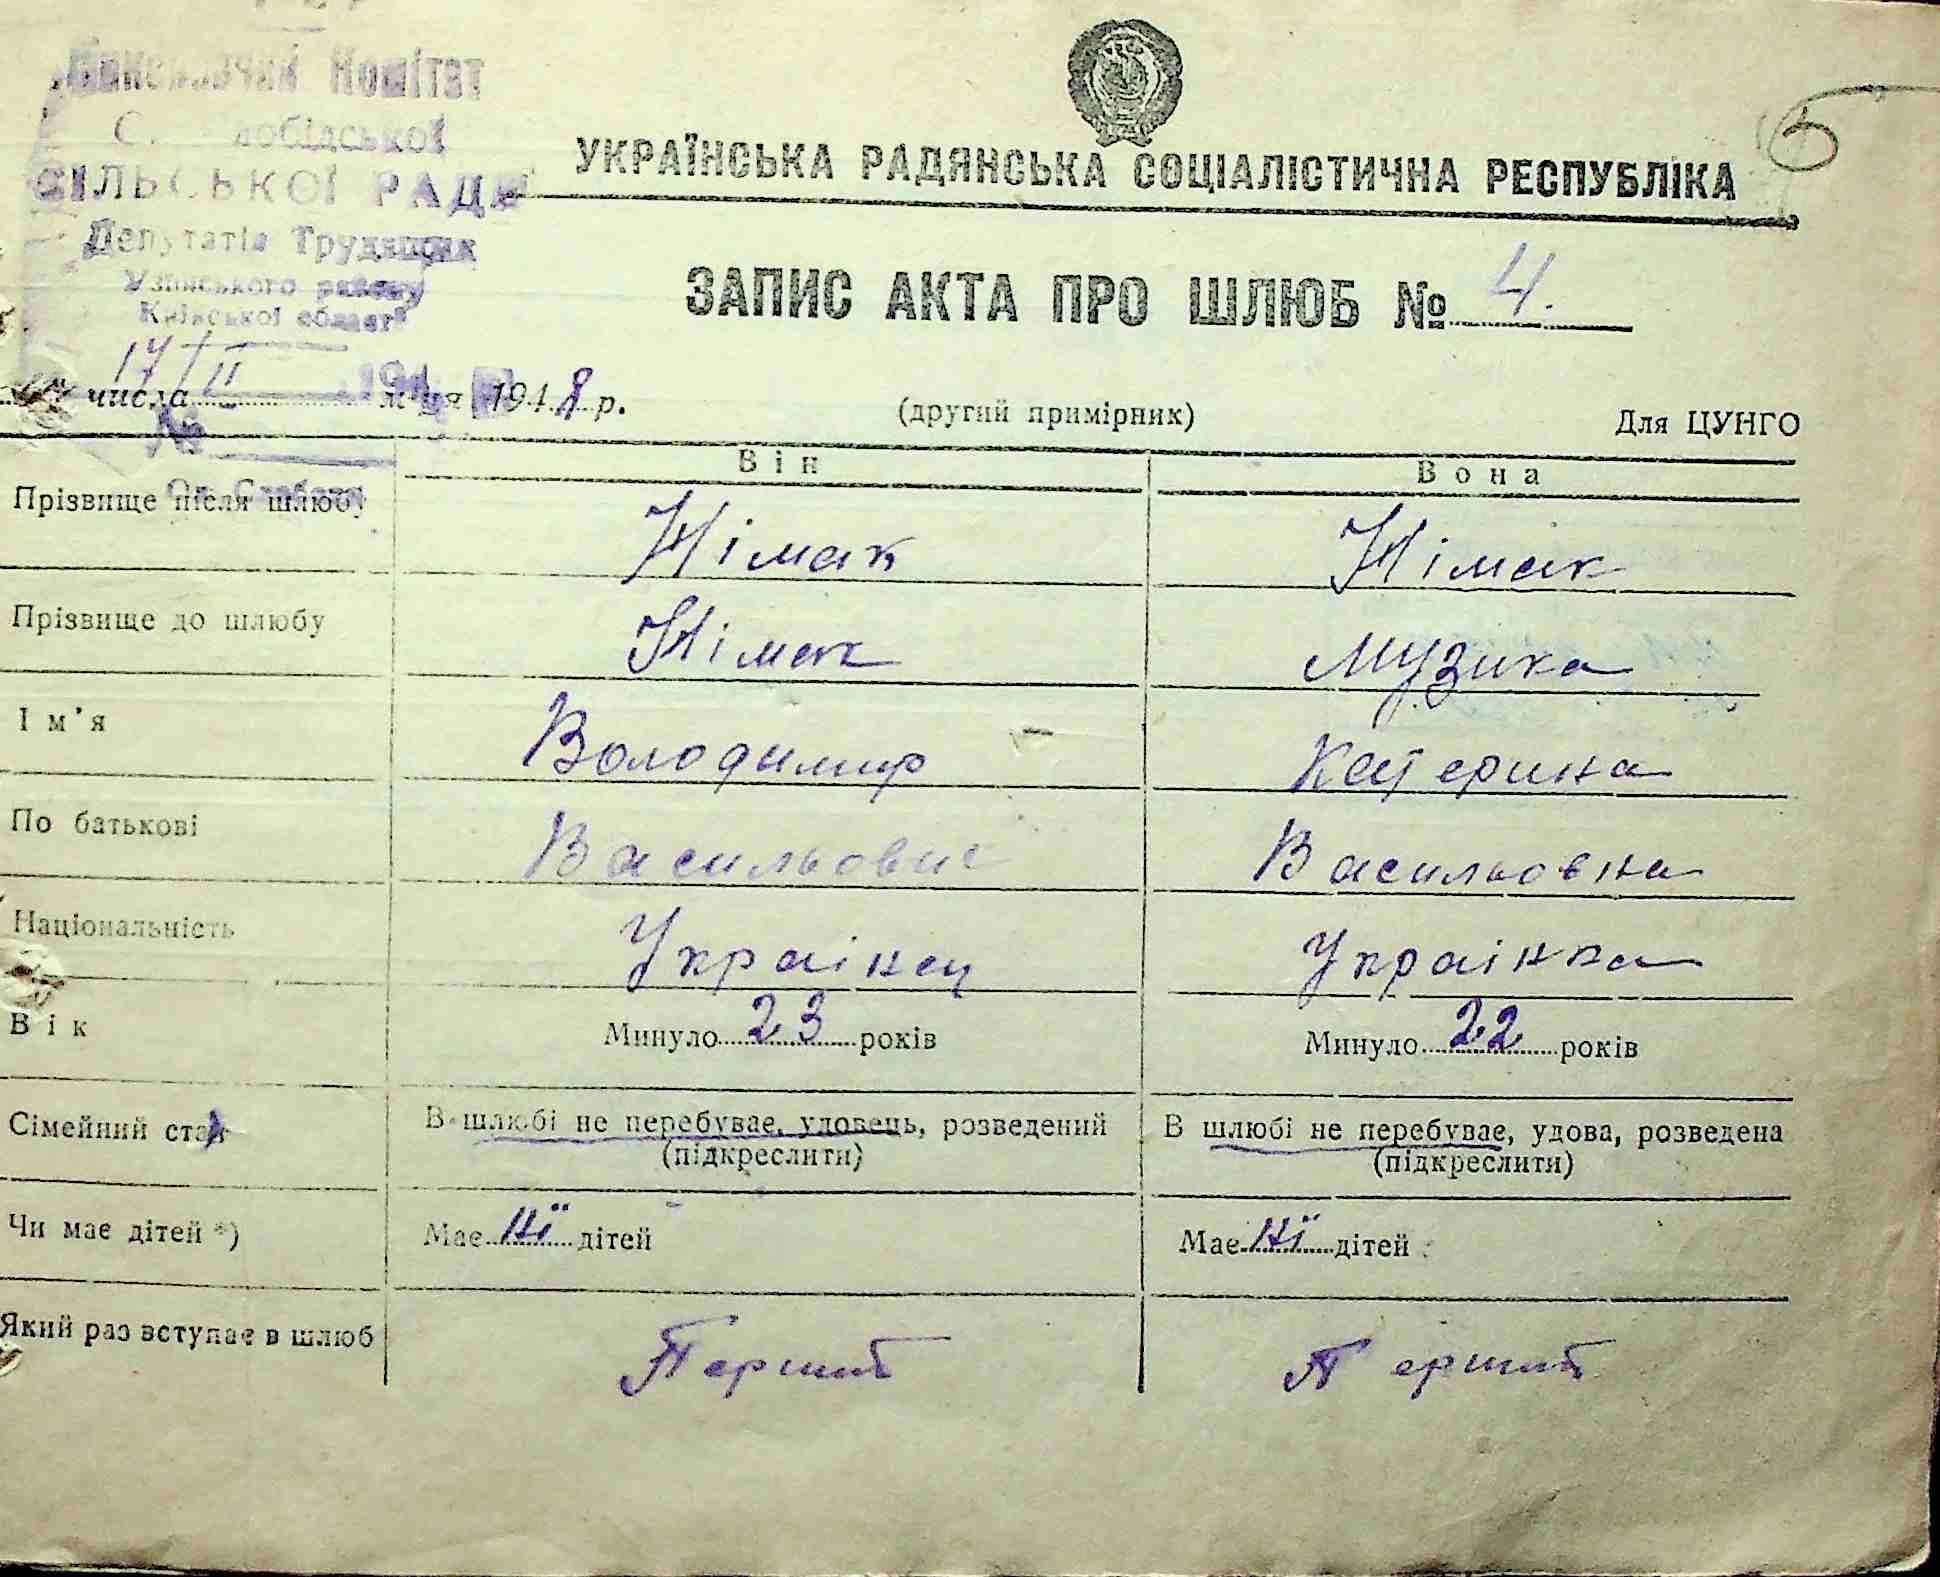 Виконавчий Комітет
С.
СІЛЬСЬКОЇ РАДИ
Депутатів Трудящих
Узинського району
Київської області
5
УКРАЇНСЬКА РАДЯНСЬКА СОЦІАЛІСТИЧНА РЕСПУБЛІКА
ЗАПИС АКТА ПРО ШЛЮБ № 4.
17/II
числа м-ця 1948 р.
(другий примірник)
Для ЦУНГО
№
Він Вона
Прізвище після шлюбу Німак Німак
Прізвище до шлюбу Німак Музика
Ім'я Володимир Катерина
По батькові Васильович Васильовна
Національність Украінец Украінка
Вік Минуло 23 років Минуло 22 років
Сімейний стан В шлюбі не перебуває, удовець, розведений В шлюбі не перебуває, удова, розведена
(підкреслити) (підкреслити)
Чи має дітей *) Має ні дітей Має ні дітей
Який раз вступає в шлюб Перший Перший